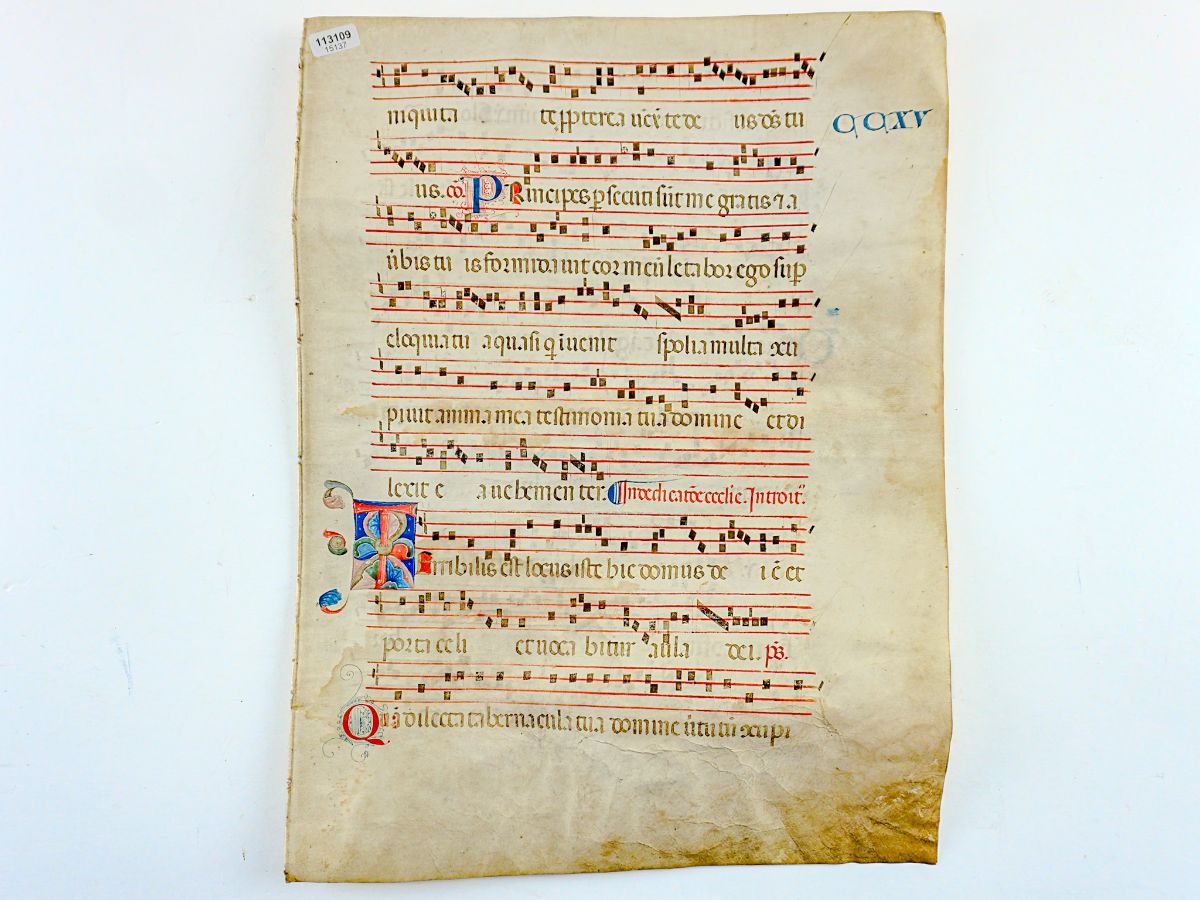 113109
15137
iniquita te ppterea ūcx te de us ds tu
CCXV
us. cō. PRincipes psecuti sūt me gratis ⁊ a
ūbis tu is formidauit cor meū letabor ego sup
eloquia tu a quasi q īuenit spolia multa exu
piuit anima mea testimonia tua domine et di
lexit e a uehementer. In dedicatōe ecclie. Introit.
Terribilis est locus iste hic domus de i ē et
porta celi et uoca bitur aula dei. ps.
Quā dilecta tabernacula tua domine ūtutū exupi